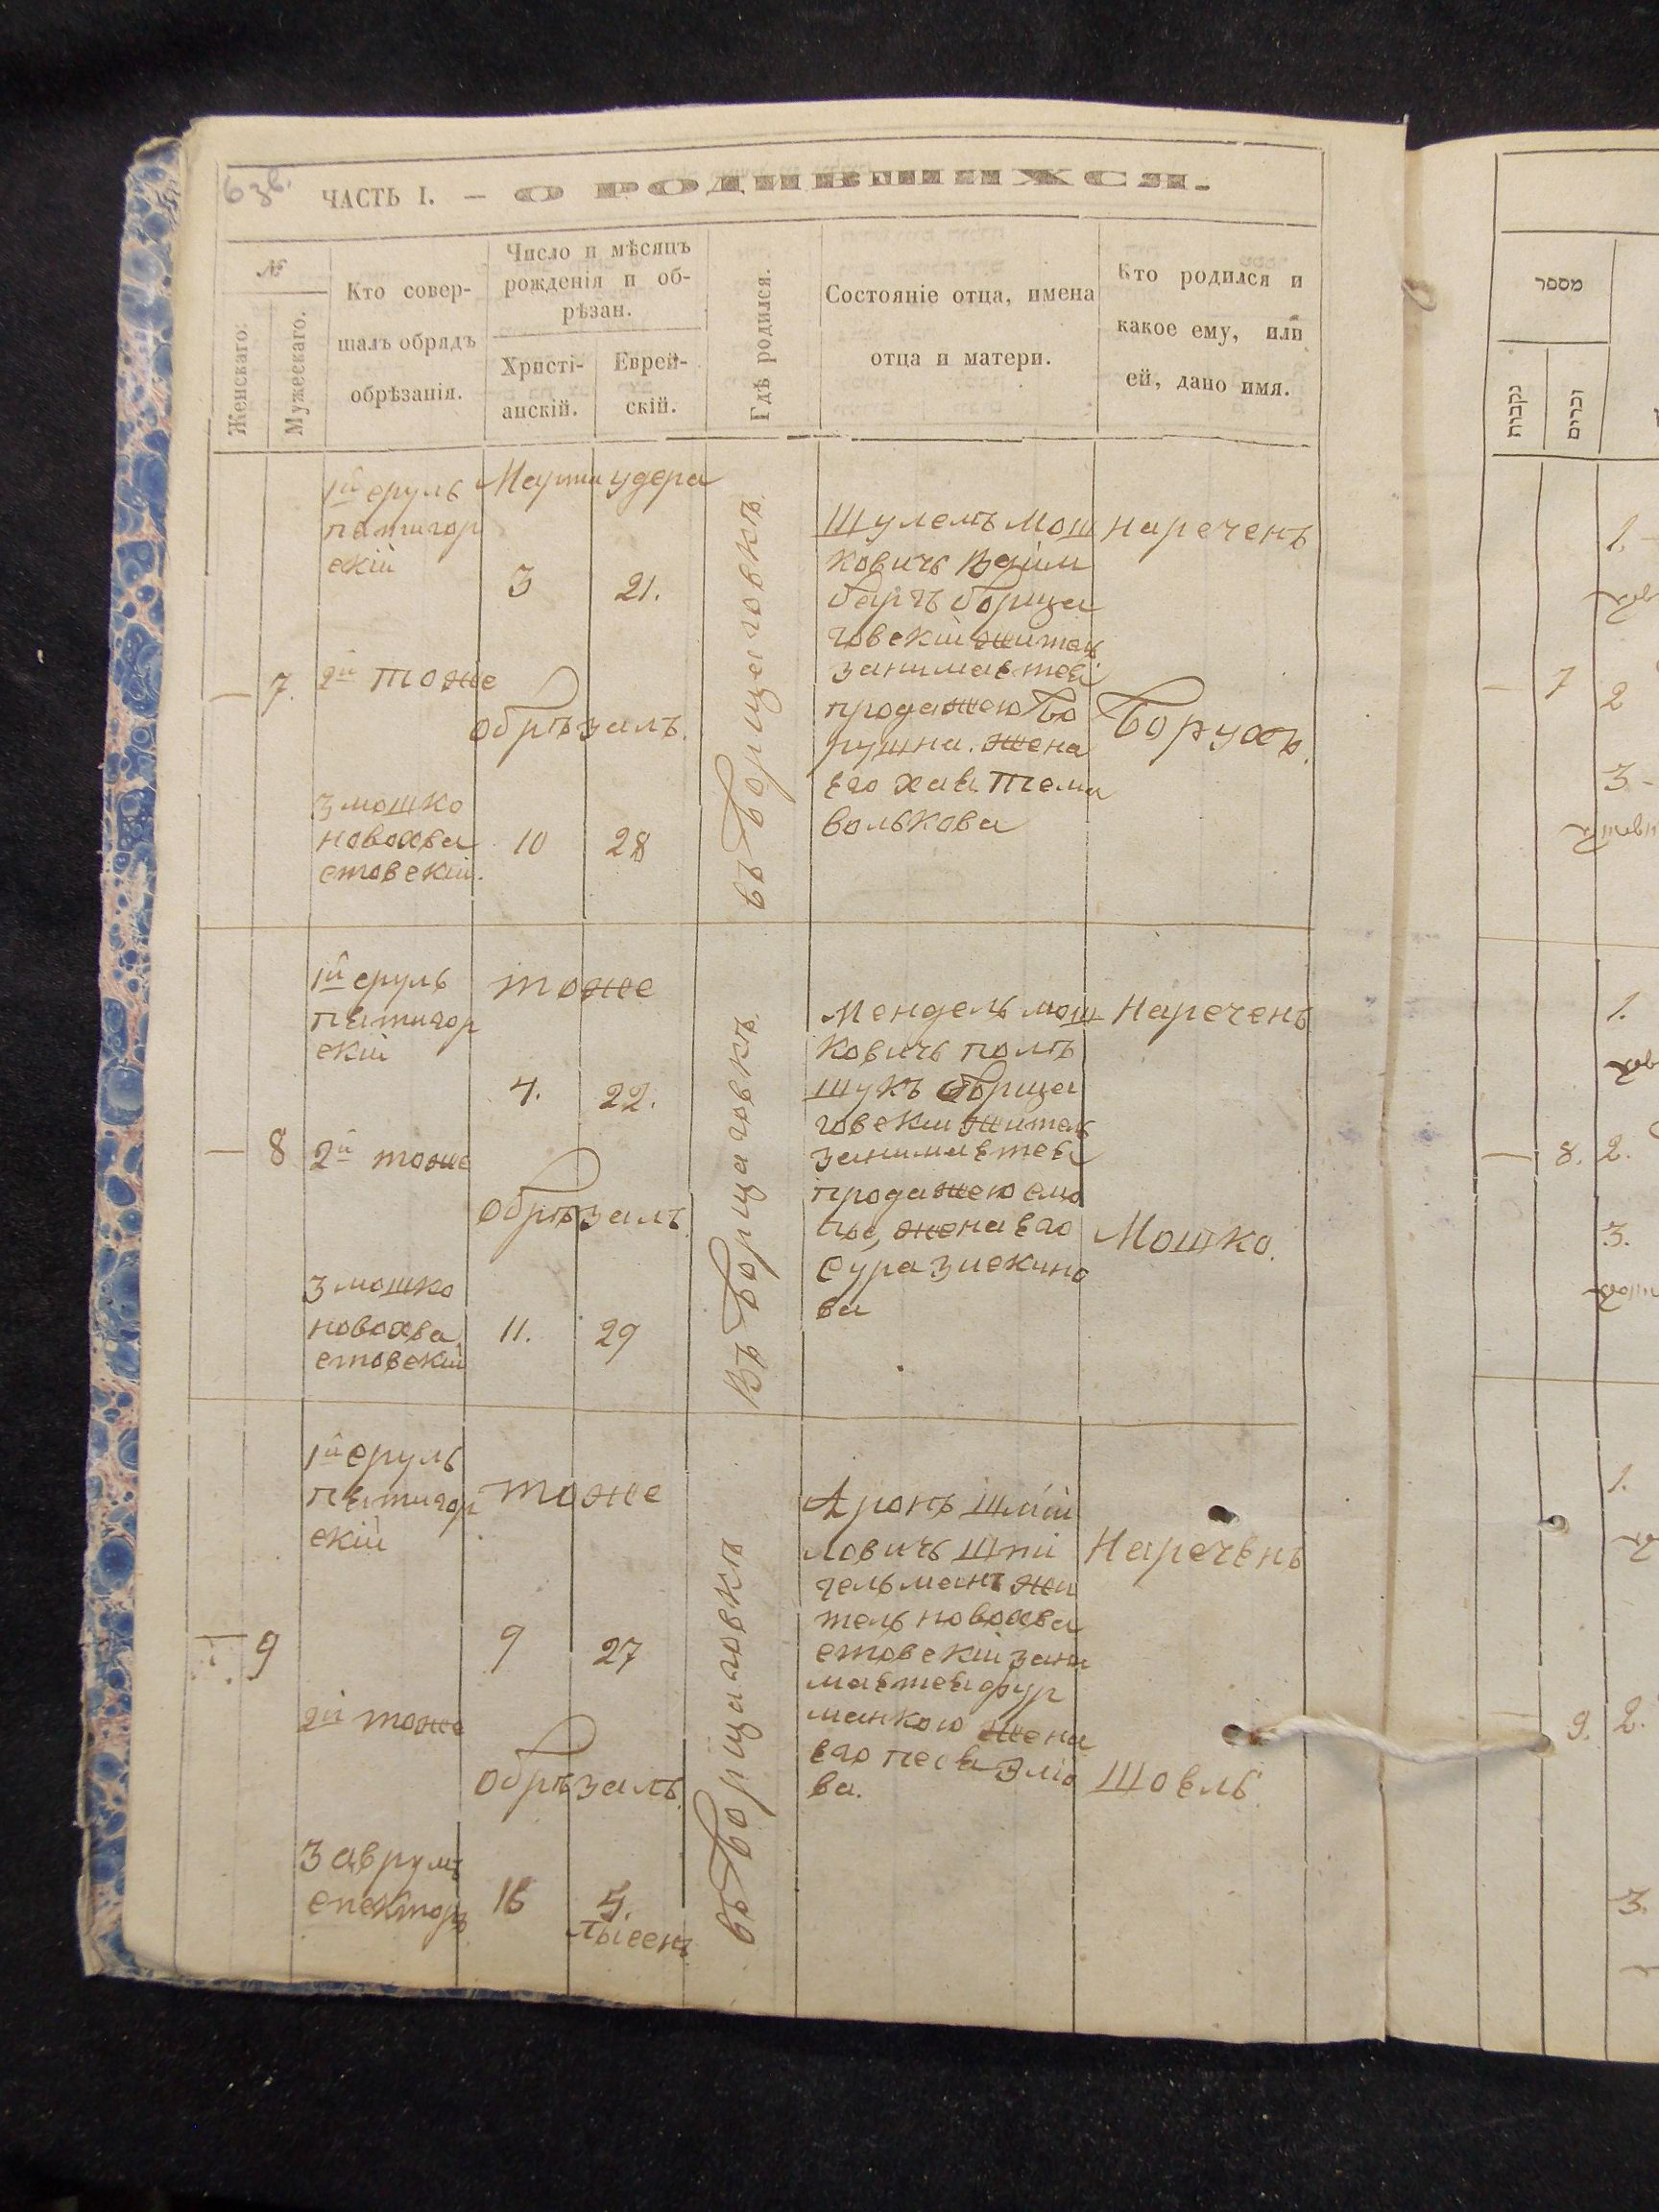 6 зв.
ЧАСТЬ I. — О РОДИВШИХСЯ.
№
Женскаго.
Мужескаго.
Кто совер-
шалъ обрядъ
обрѣзанія.
Число и мѣсяцъ
рожденія и об-
рѣзан.
Христі-
анскій.
Еврей-
скій.
Гдѣ родился.
Состояніе отца, имена
отца и матери.
Кто родился и
какое ему, или
ей, дано имя.
— 7.
1й сруль
пятигор
скій
2й тоже
3 мошко
новохва
стовскій.
Марта удера
3 21.
обрѣзалъ.
10 28
въ Борщаговкѣ.
Шулемъ Мош
ковичъ
борща
говскій житель
занимается
продажею бо
рушна. жена
его хава тема
волькова
нареченъ
Борухъ.
— 8
1й сруль
пятигор
скій
2й тоже
3 мошко
новохва
стовскій
тоже
4. 22.
Обрѣзалъ
11. 29
Въ Борщаговкѣ.
Мендель мош
ковичъ полѣ
щукъ борща
говскій житель
занимается
продажею смо
лы, жена его
Сура зискино
ва
Нареченъ
Мошко.
— 9
1й сруль
пятигор
скій
2й тоже
3 аврумъ
спекторъ
тоже
9 27
Обрѣзалъ.
16 5.
въ Борщаговкѣ
Аронъ Шмій
ловичъ Шпі
гельманъ жи
тель новохва
стовскій зани
мается фур
манкою жена
его песя Эліо
ва.
Нареченъ
Шоель.
מספר
נקבות
זכרים
— 7
1.
2
3
— 8.
1.
2.
3.
— 9.
1.
2.
3.